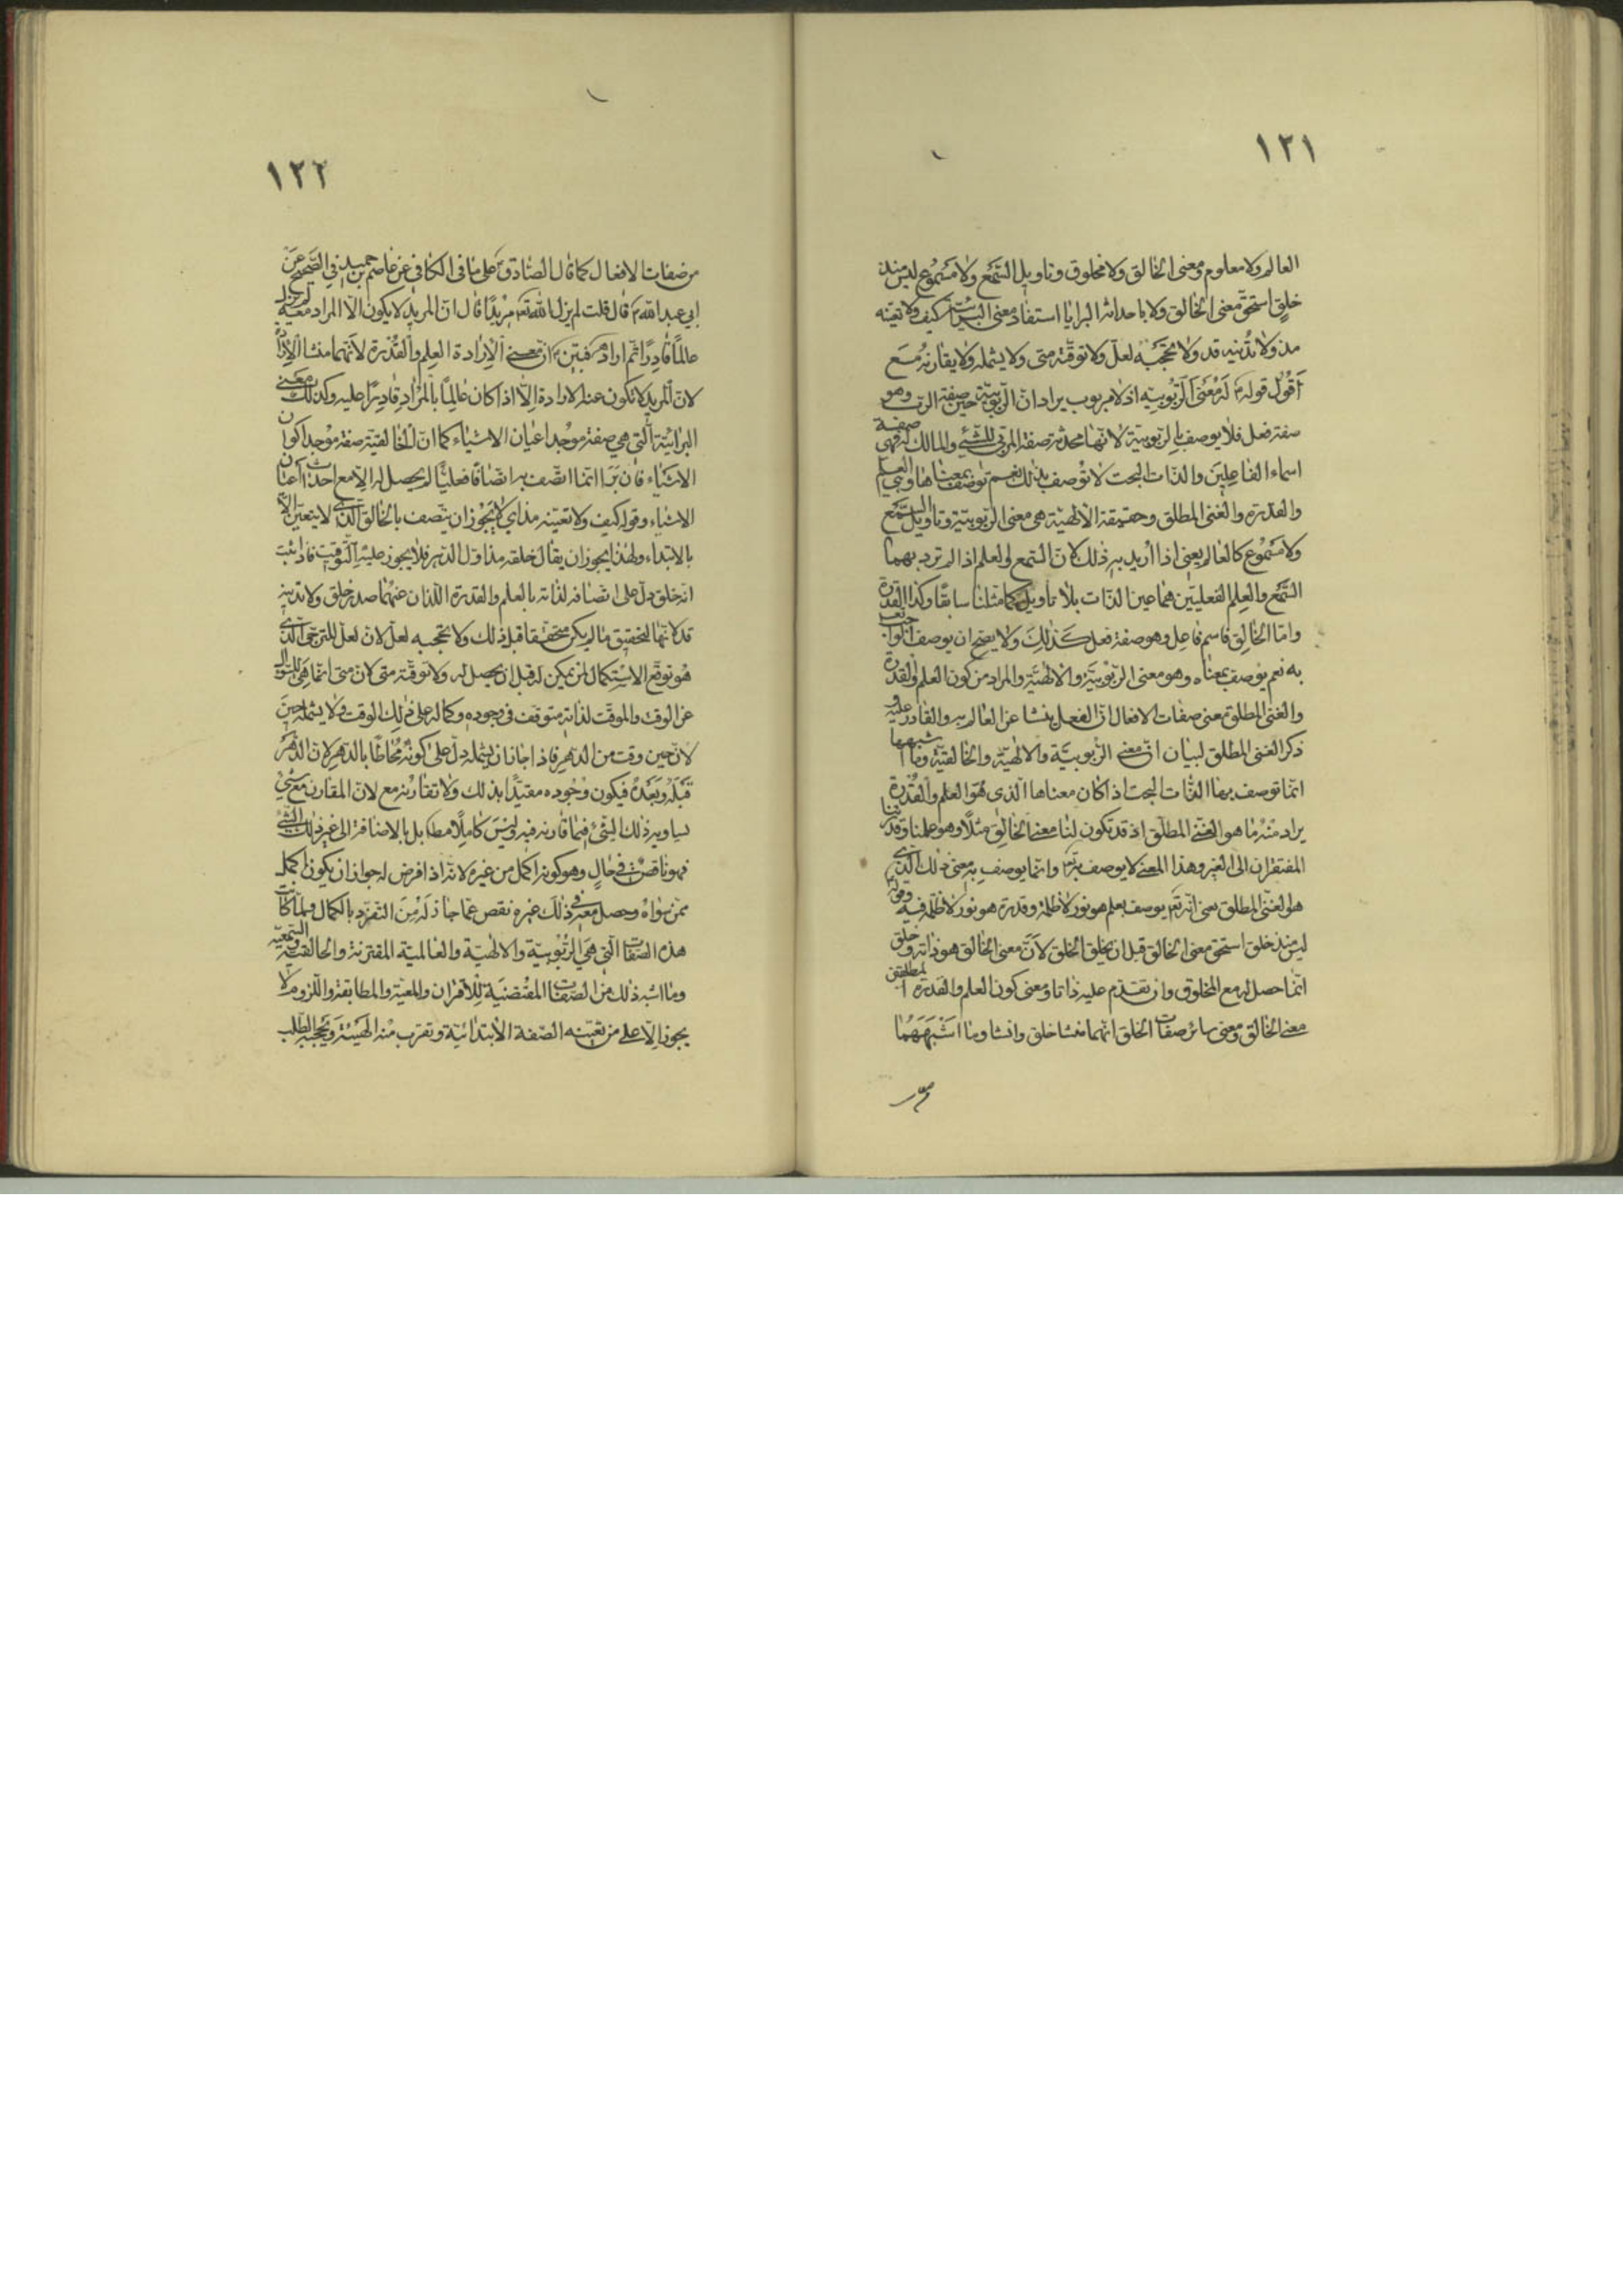 ١٢١
العالم ولا معلوم ومعنى الخالق ولا مخلوق وتاويل السّمع ولا مسموع ليس منذ
خلق استحقّ معنى الخالق ولا باحداثه البرايا استفاد معنى البرائيّة كيف ولا تغيّبه
مذ ولا تدنيه قد ولا تحجبه لعلّ ولا توقّته متى ولا يشمله ولا يقارنه مع
أقول قوله له معنى الرّبوبيّة اذ لا مربوب يراد انّ الرّبوبيّة حين صفة الربّ وهو
صفة فعل فلا يوصف بالربوبيّة لانّها محدثة صفة المربّي للشّيء والمالك له فهي صفة
اسماء الفاعلين والذات البحت لا توصف بذلك نعم توصف بمعناها وهي العلم
والقدرة والغنى المطلق وحقيقة الالهيّة هي معنى الرّبوبيّة وتاويل السّمع
ولا مسموع كالعالم يعني اذا اريد به ذلك لانّ السّمع والعلم اذا لم ترد بهما
السّمع والعلم الفعليّين فهما عين الذّات بلا تاويل كما مثّلنا سابقًا وكذا القدرة
وامّا الخالق فاسم فاعل وهو صفة فعل كذلك ولا يصحّ ان يوصف
به نعم يوصف بمعناه وهو معنى الربوبيّة والالهيّة والمراد من كون العلم والقدرة
والغنى المطلق معنى صفات الافعال انّ الفعل ينشا عن العالم به والقادر عليه و
ذكر الغنى المطلق لبيان انّ معنى الرّبوبيّة والالهيّة والخالقيّة وما اشبهها
انّما توصف بها الذّات البحت اذا كان معناها الّذي هو العلم والقدرة
يراد منه ما هو الغنى المطلق اذ قد تكون لنا معنى الخالق مثلًا وهو علمنا وقدرتنا
المفتقران الى الغير وهذا المعنى لا يوصف به وانّما يوصف به معنى ذلك الّذي
هو الغنى المطلق يعني انّه تع يوصف بعلم هو نور لا ظلمة وقدرة هو نور لا ظلمة فيه وقوله
ليس منذ خلق استحق معنى الخالق قبل ان يخلق الخلق لانّ معنى الخالق هو ذاته وخلق
انّما حصل له مع المخلوق وان تقدّم عليه ذاتا ومعنى كون العلم والقدرة المطلقين
معنى الخالق ومعنى سائر صفات الخلق انّهما منشا خلق وانشا وما اشبههما
١٢٢
من صفات الافعال كما قال الصّادق على ما في الكافي عن عاصم بن حميد في الصّحيح عن
ابي عبد الله قال قلت لم يزل الله مريدًا قال انّ المريد لا يكون الّا المراد معه لم يزل
عالمًا قادرًا ثمّ اراد فبيّن انّ معنى الارادة العلم والقدرة لانّهما منشا الارادة
لانّ المريد لا تكون عنه الارادة الّا اذا كان عالمًا بالمراد قادرًا عليه وكذلك معنى
البرائيّة الّتي هي صفة موجد اعيان الاشياء كما انّ الخالقيّة صفة موجد اكوان
الاشياء فان برا انّما اتّصف به اتّصافًا فعليًّا لم يحصل له الّا مع احداث اعيان
الاشياء وقوله كيف ولا تغيّبه مذ اي لا يجوز ان يتّصف بالخالق الّذي لا يتعيّن الّا
بالابتداء ولهذا يجوز ان يقال خلقه مذ اوّل الدّهر فلا يجوز عليه التّوقيت فاذا ثبت
انّه خلق دلّ على اتّصافه لذاته بالعلم والقدرة اللّذان عنهما صدر خلق ولا تدنيه
قد لانّها لتحقيق ما لم يكن متحققا قبل ذلك ولا تحجبه لعلّ لانّ لعلّ للترجّي الّذي
هو توقّع الاستكمال لمن يمكن له قبل ان يحصل له ولا توقّته متى لانّ متى انّما هي للسّؤال
عن الوقت والموقّت لذاته متوقف في وجوده وكماله على ذلك الوقت ولا يشمله حين
لانّ حين وقت من الدّهر فاذا جاز ان يشمله دلّ على كونه محاطًا بالدّهر لانّ الدّهر
قبله وبعده فيكون وجوده مقيّدًا بذلك ولا تقارنه مع لانّ المقارن مع شيء
يساويه ذلك الشّيء فيما قارنه فيه وليس كاملًا مط بل بالاضافة الى غير ذلك الشّيء
فهو ناقص في حال وهو كونه اكمل من غيره لانّه اذا فرض له جواز ان يكون اكمل
ممّن سواه وحصل معه في ذلك غيره نقص عمّا جاز له من التّفرّد بالكمال ولمّا كانت
هذه الصّفات الّتي هي الرّبوبيّة والالهيّة والعالميّة المقترنة والخالقيّة والسّمعيّة
وما اشبه ذلك من الصّفات المقتضية للاقتران والمعيّة والمطابقة واللّزوم لا
يجوز الّا على من تغيّبه الصّفة الابتدائيّة وتقرب منه الهيئة وتحجبه الطّلب